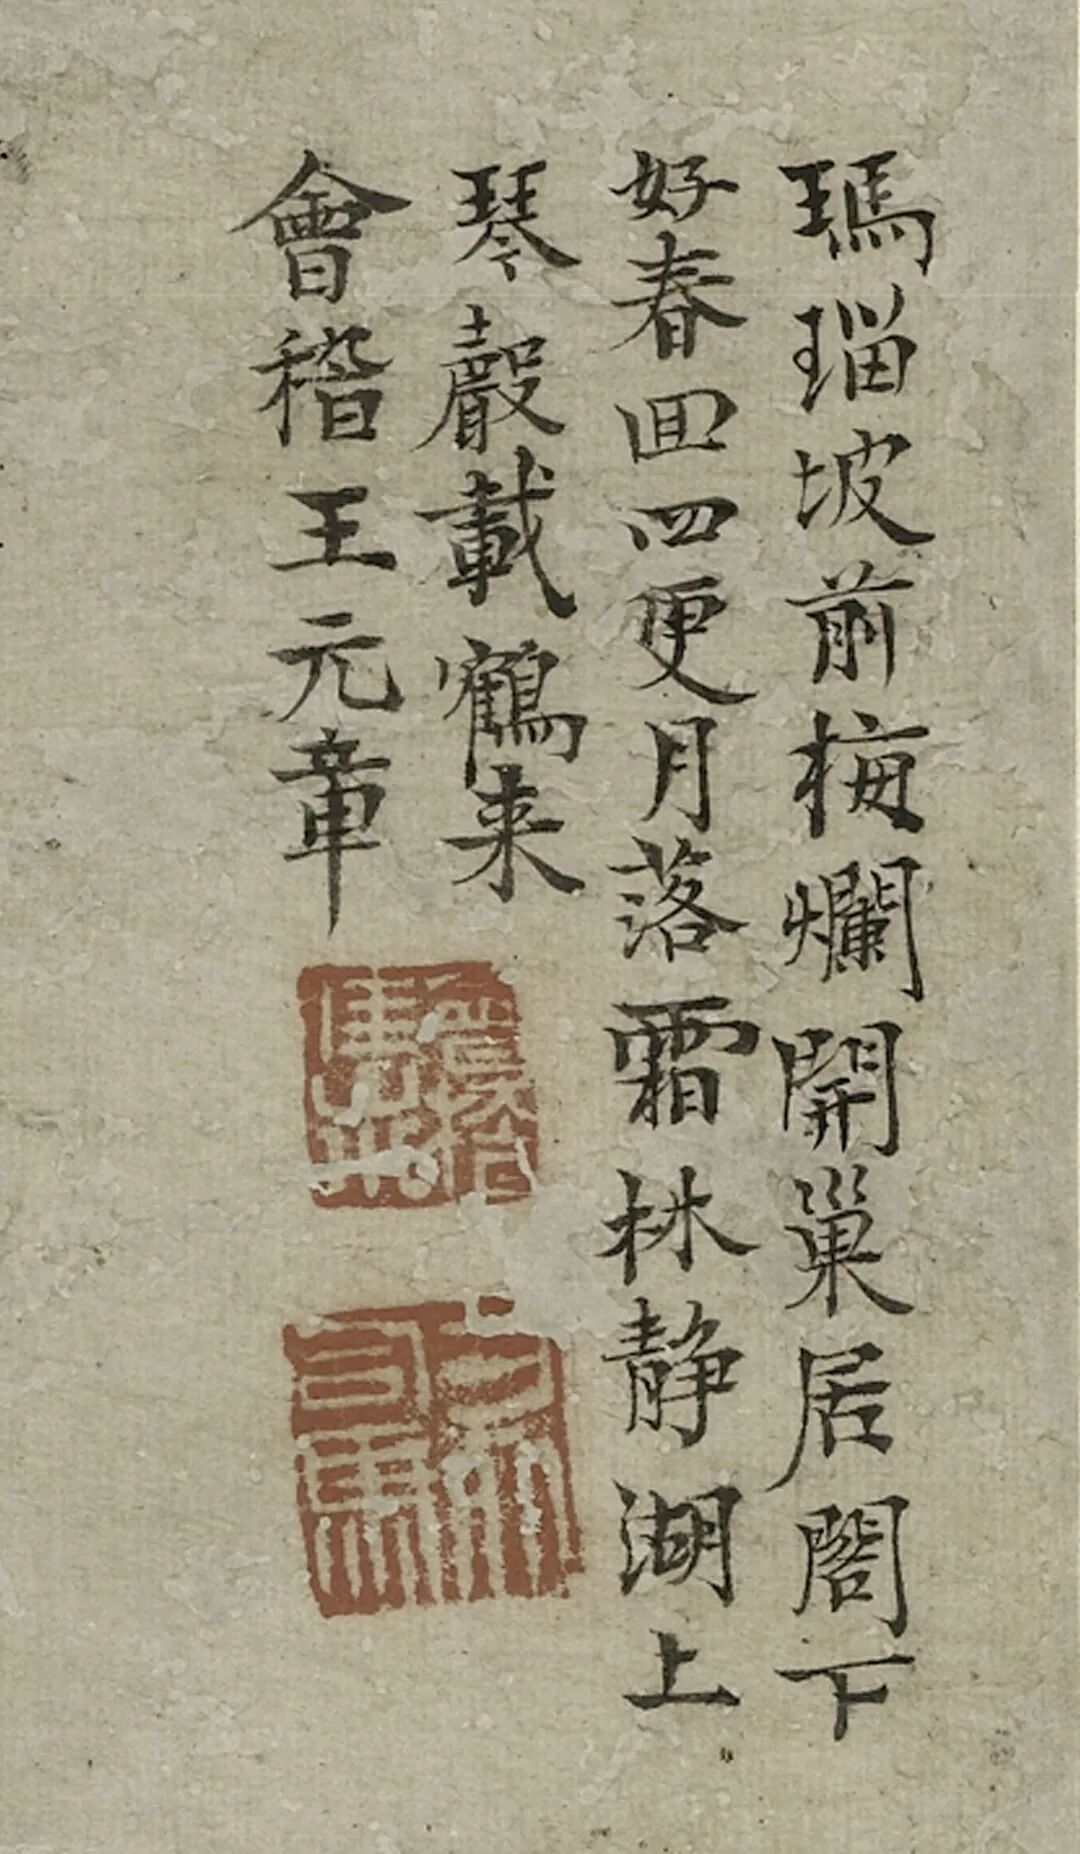 瑪瑙坡前梅爛開巢居閣下
好春回四更月落霜林静湖上
琴聲載鶴来
會稽王元章